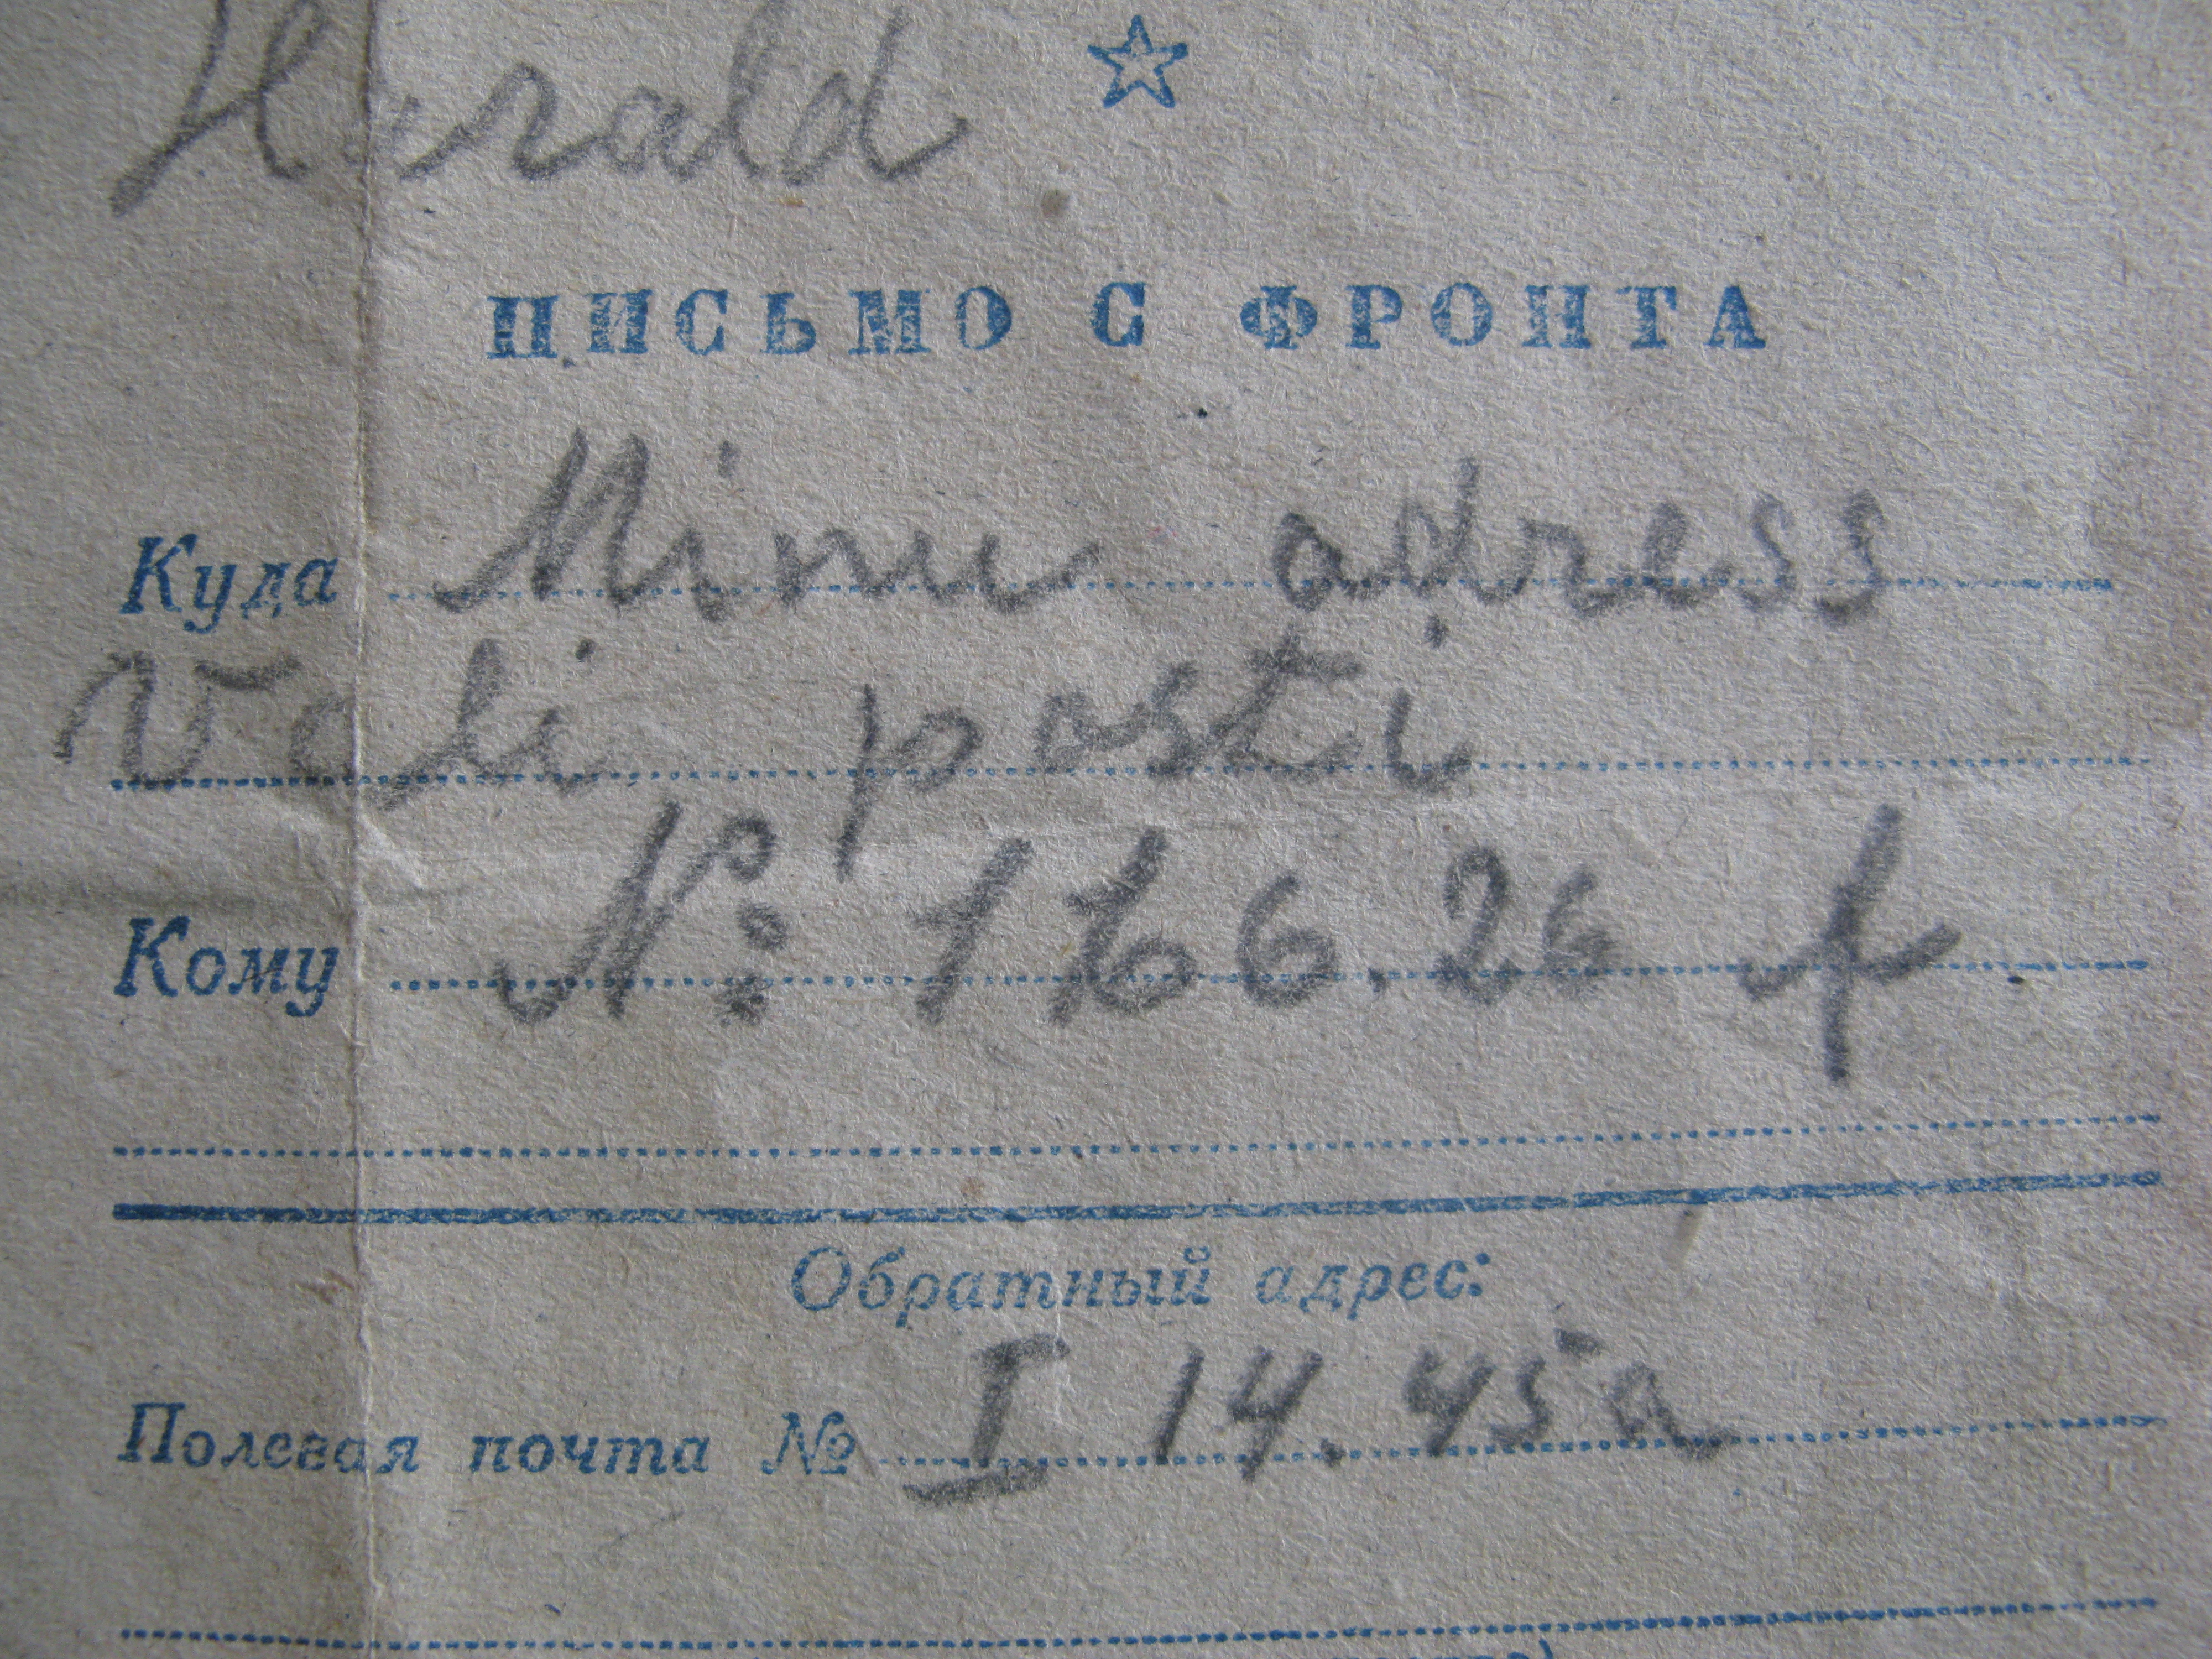 Harald
ПИСЬМО С ФРОНТА
Куда Minu adress
Väli posti
Кому № 166.26 f
Обратный адрес:
Полевая почта № I 14.45a